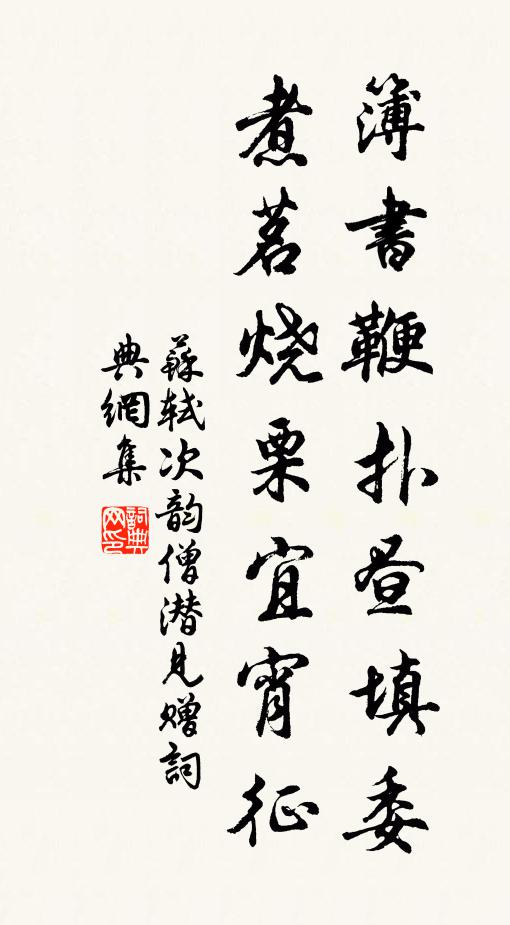 簿書鞭扑昼填委
煮茗烧栗宜宵征
蘇轼次韵僧潜见赠詞
典網集
詞典网印